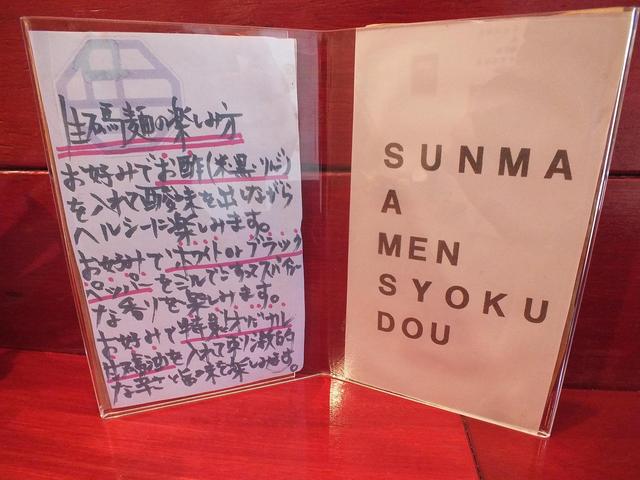 生碼麺の楽しみ方
お好みでお酢(米黒リンゴ)
を入れて酸味を出しながら
ヘルシーに楽しみます。
お好みでホワイトorブラック
ペッパーをミルで スパイシー
な香りを楽しみます。
お好みで特製!
を入れて刺激的
な辛さと旨味を楽しみます。
SUNMA
A
MEN
SYOKU
DOU